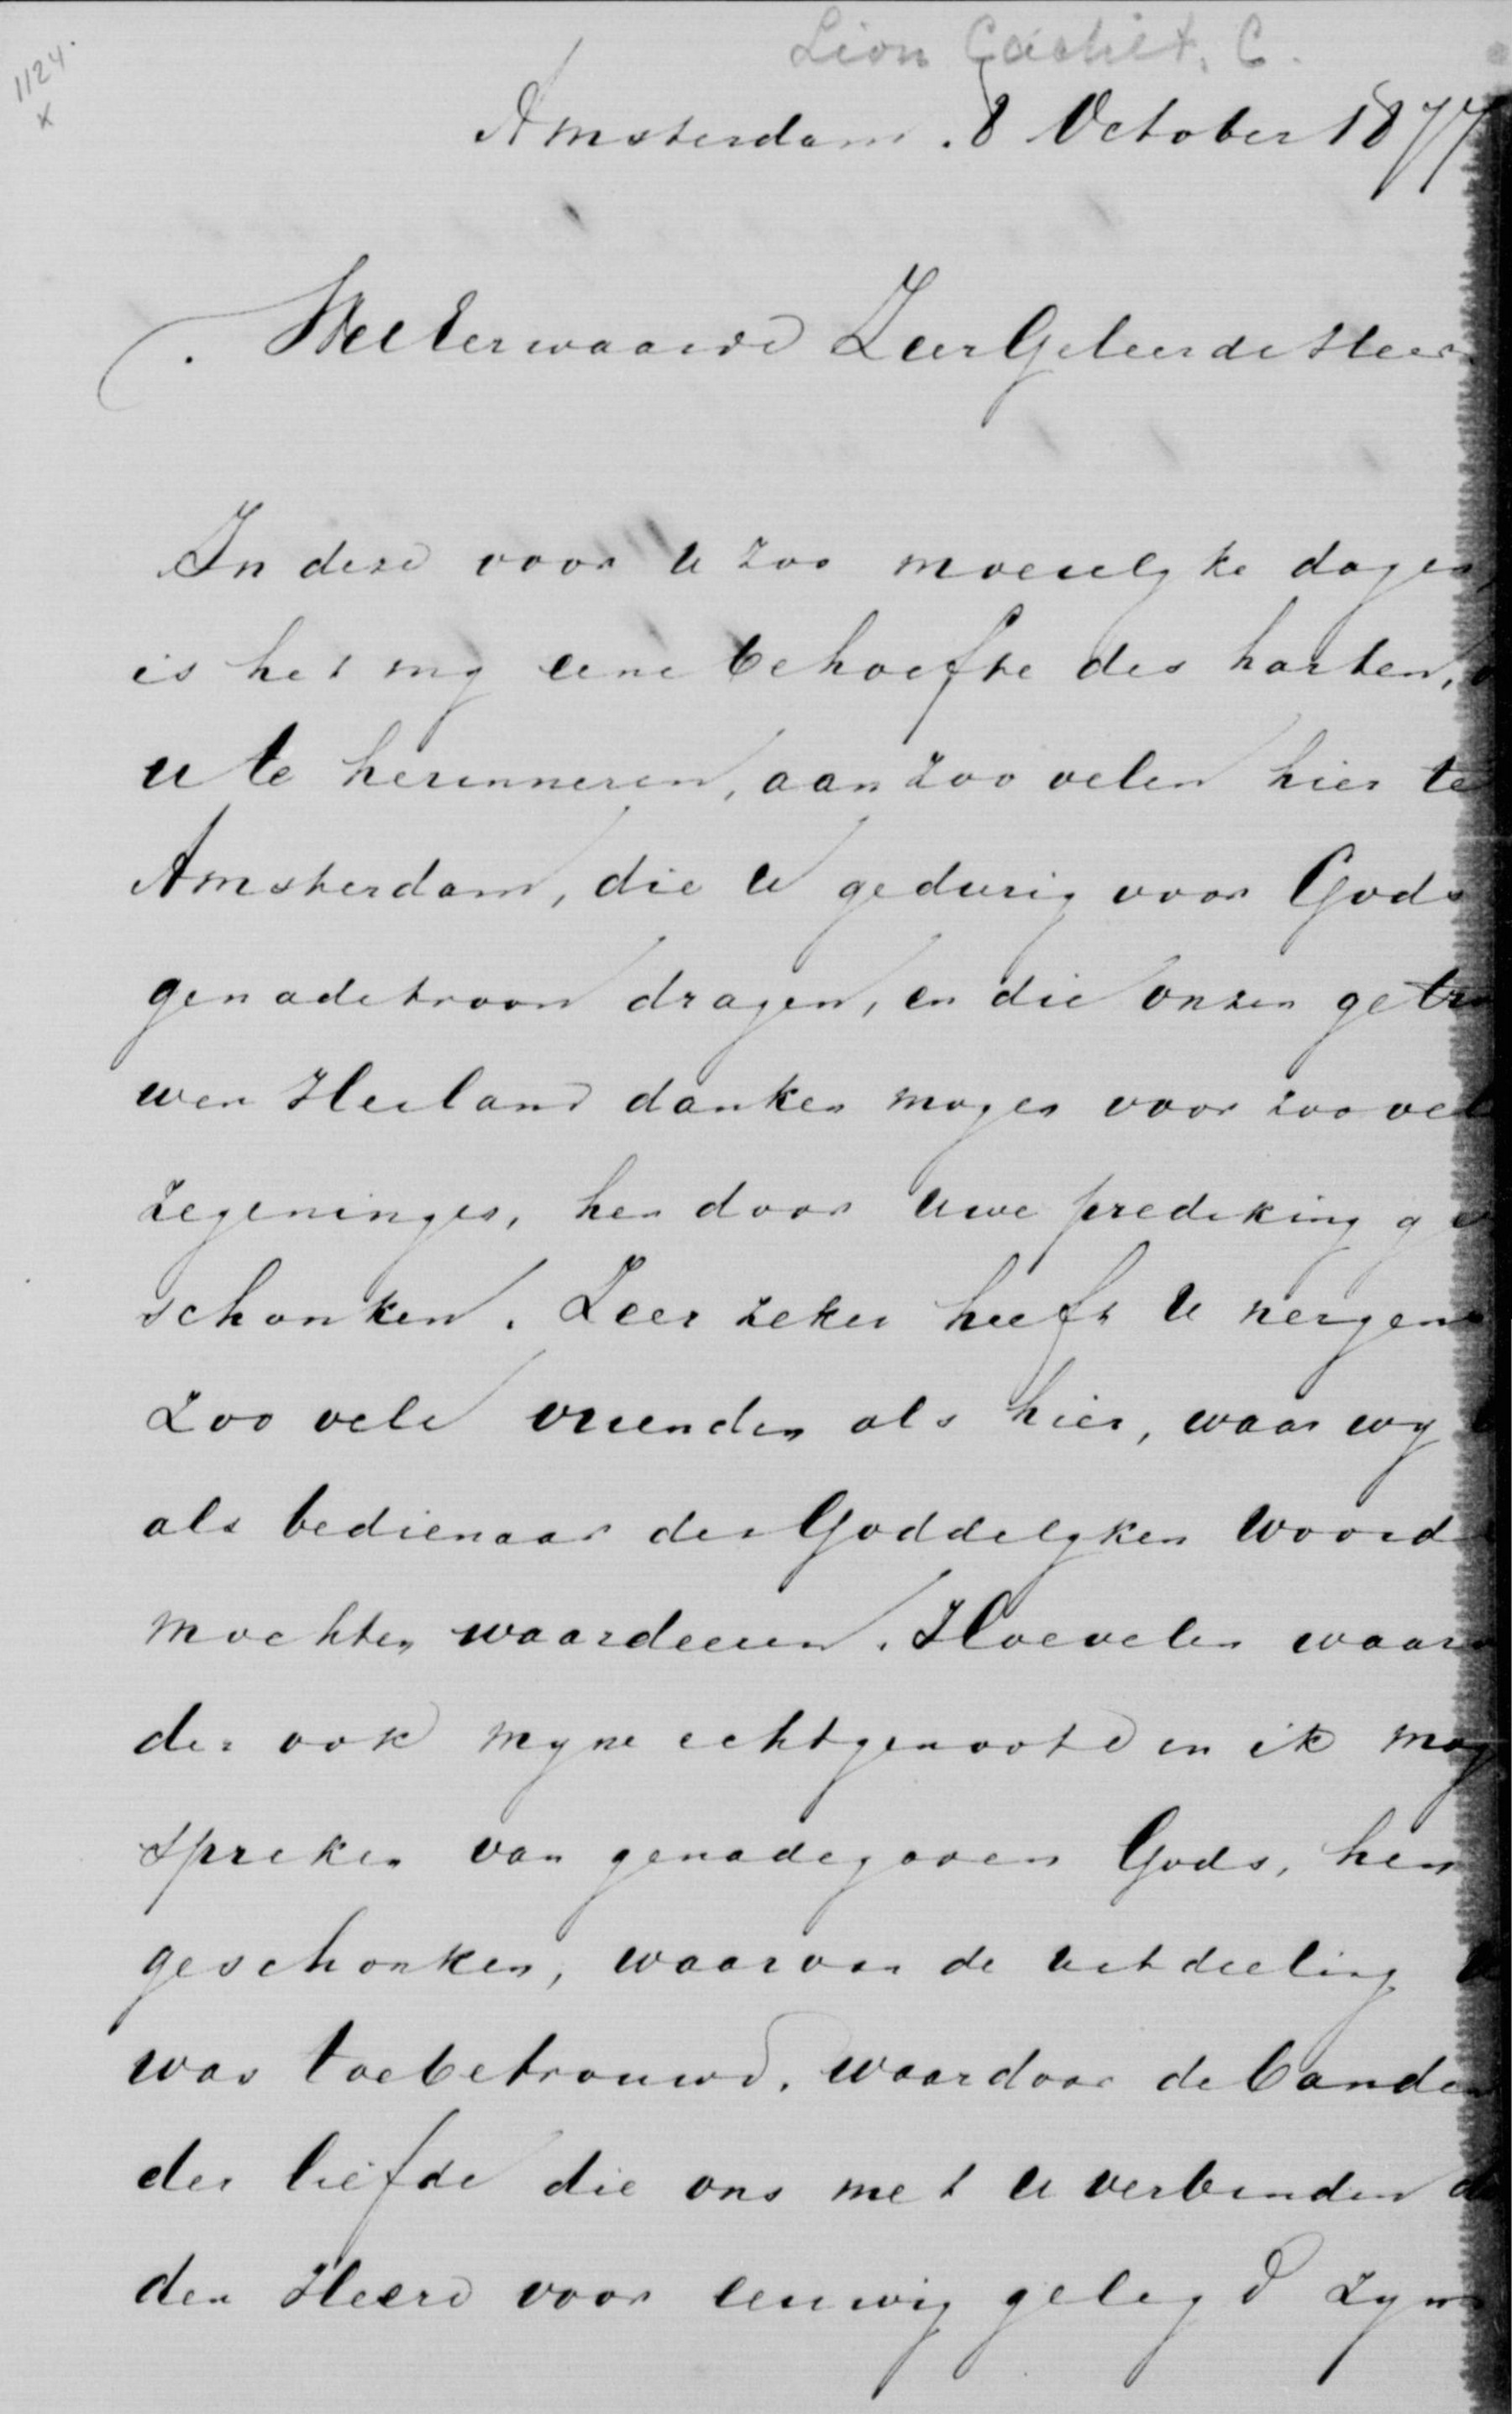 1124.
x
Lion Cachet, C.
Amsterdam. 8 October 1877
WelEerwaarde ZeerGeleerde Heer
In deze voor U zoo moeielyke dagen,
is het my eene behoefte des harten,
u te herinneren, aan zoo velen hier te
Amsterdam, die U gedurig voor Gods
genadetroon dragen, en die onzen getrou
wen Heiland danken mogen voor zoo vel
zegeningen, hen door Uwe prediking ge
schonken. Zeer zeker heeft U nergens
zoo vele vrienden als hier, waar wy U
als bedienaar des Goddelyken Woords
mochten waardeeren. Hoevelen waaron
der ook myne echtgenoote en ik mog
spreken van genadegaven Gods, hen
geschonken, waarvan de uitdeeling U
was toebetrouwd, waardoor de banden
der liefde die ons met U verbinden do
den Heere voor eeuwig gelegd zyn